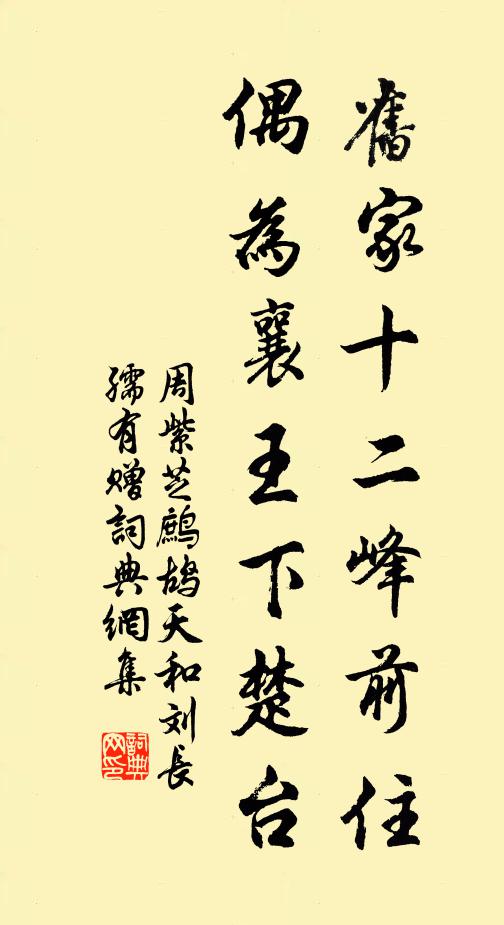 舊家十二峰前住
偶為襄王下楚台
周紫芝鷓鴣天和刘長
孺有贈詞典網集
詞典網印